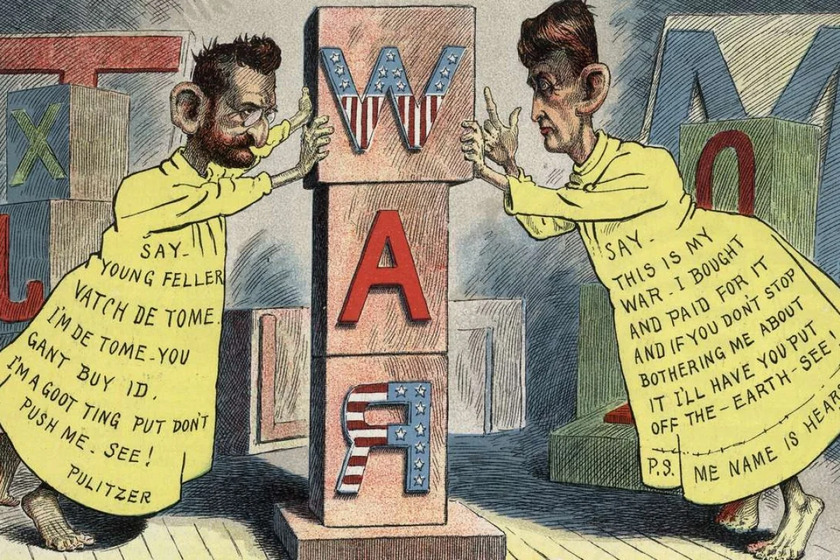 W
A
R
SAY-
YOUNG FELLER
VATCH DE TOME.
I'M DE TOME-YOU
GANT BUY ID.
I'M A GOOT TING PUT DON'T
PUSH ME. SEE!
PULITZER
SAY-
THIS IS MY
WAR-I BOUGHT
AND PAID FOR IT
AND IF YOU DON'T STOP
BOTHERING ME ABOUT
IT I'LL HAVE YOU PUT
OFF THE-EARTH-SEE
P.S. ME NAME IS HEAR
X
J
T
L
O